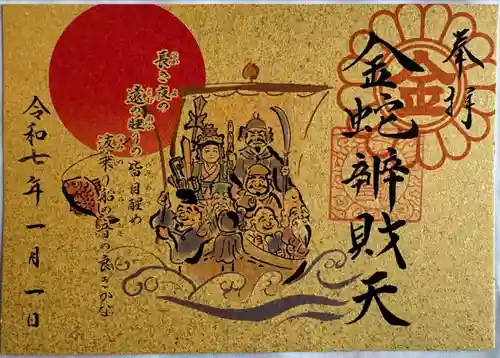 奉拝
金
金蛇辨財天
長き夜の
遠の眠りの皆目醒め
波乗り船の音の良きかな
令和七年一月一日